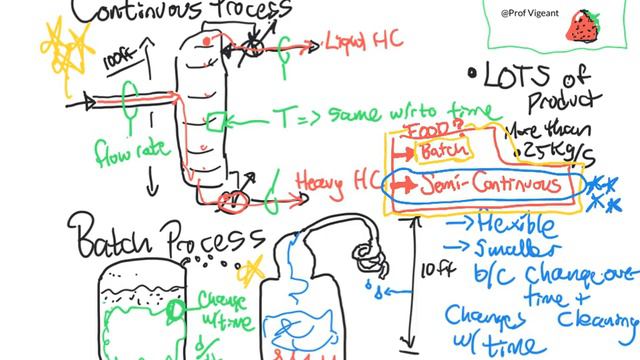 Continuous Process
@Prof Vigeant
100ft
Liquid HC
• LOTS of
Product
More than
.25Kg/s
T => same w/r to time
flow rate
FOOD?
Batch
Semi-Continuous
Heavy HC
Batch Process
→ Flexible
→ Smaller
b/c change over
time +
Cleaning
10ft
Change
w/time
Changes
w/time